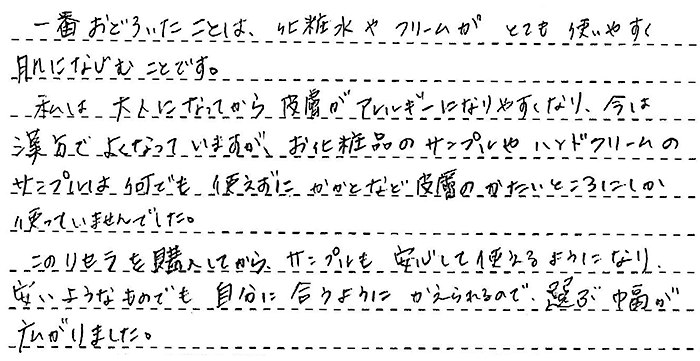 一番おどろいたことは、化粧水やクリームがとても使いやすく
肌になじむことです。
私は大人になってから皮膚がアレルギーになりやすくなり、今は
漢方でよくなっていますが、お化粧品のサンプルやハンドクリームの
サンプルは何でも使えずに、かかとなど皮膚のかたいところにしか
使っていませんでした。
このリセラを購入してから、サンプルも安心して使えるようになり、
安いようなものでも自分に合うようにかえられるので、選ぶ幅が
広がりました。